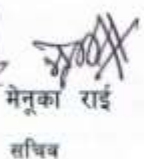 मेनुका राई
सचिव